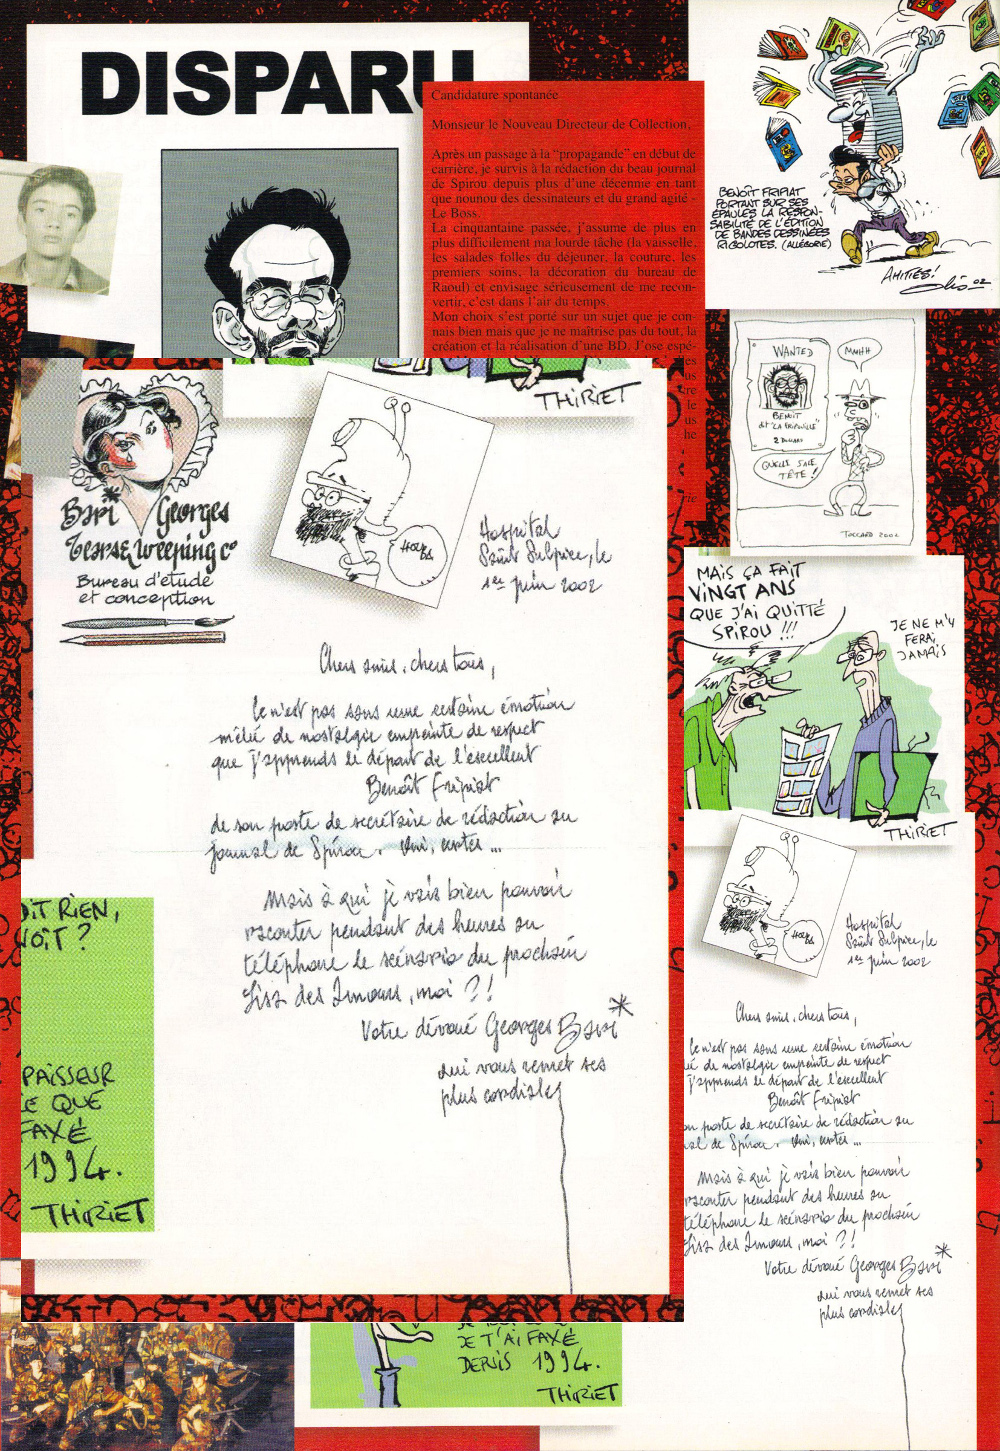 DISPARU
Candidature spontanée
Monsieur le Nouveau Directeur de Collection,
Après un passage à la "propagande" en début de
carrière, je survis à la rédaction du beau journal
de Spirou depuis plus d'une décennie en tant
que nounou des dessinateurs et du grand agité -
Le Boss.
La cinquantaine passée, j'assume de plus en
plus difficilement ma lourde tâche (la vaisselle,
les salades folles du déjeuner, la couture, les
premiers soins, la décoration du bureau de
Raoul) et envisage sérieusement de me recon-
vertir, c'est dans l'air du temps.
Mon choix s'est porté sur un sujet que je con-
nais bien mais que je ne maîtrise pas du tout, la
création et la réalisation d'une BD. J'ose espé-
les
us
re
le
us
he
rie
BENOÎT FRIPIAT
PORTANT SUR SES
ÉPAULES LA RESPON-
SABILITÉ DE L'ÉDITION
DE BANDES DESSINÉES
RIGOLOTES. (ALLÉGORIE)
AMITIÉS!
02
WANTED
BENOIT
dit "LA FRIPOUILLE"
2 DOLLARS
MMHH
QUELLE SALE
TÊTE !
TOCCARD 2002
MAIS ÇA FAIT
VINGT ANS
QUE J'AI QUITTÉ
SPIROU !!!
JE NE M'Y
FERAI
JAMAIS
THIRIET
THIRIET
Bari Georges
Tears & Weeping Co
Bureau d'étude
et conception
HOUBA
Hospital
Saint Sulpice, le
1er juin 2002
Chers amis, chers tous,
Ce n'est pas sans une certaine émotion
mêlée de nostalgie empreinte de respect
que j'apprends le départ de l'excellent
Benoît Fripiat
de son poste de secrétaire de rédaction au
journal de Spirou. Oui, certes ...
Mais à qui je vais bien pouvoir
raconter pendant des heures au
téléphone le scénario du prochain
Lisa des Zamours, moi ?!
Votre dévoué Georges Bari*
qui vous remet ses
plus cordiales
DIT RIEN,
NOÎT ?
PAISSEUR
CE QUE
FAXÉ
1994.
THIRIET
HOUBA
Hospital
Saint Sulpice, le
1er juin 2002
Chers amis, chers tous,
Ce n'est pas sans une certaine émotion
ée de nostalgie empreinte de respect
j'apprends le départ de l'excellent
Benoît Fripiat
on poste de secrétaire de rédaction au
nal de Spirou. Oui, certes ...
Mais à qui je vais bien pouvoir
raconter pendant des heures au
téléphone le scénario du prochain
Lisa des Zamours, moi ?!
Votre dévoué Georges Bari*
qui vous remet ses
plus cordiales
JE T'AI FAXÉ
DEPUIS 1994.
THIRIET